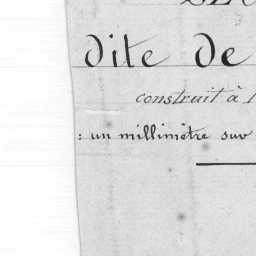 dite de
construit à
: un millimètre sur